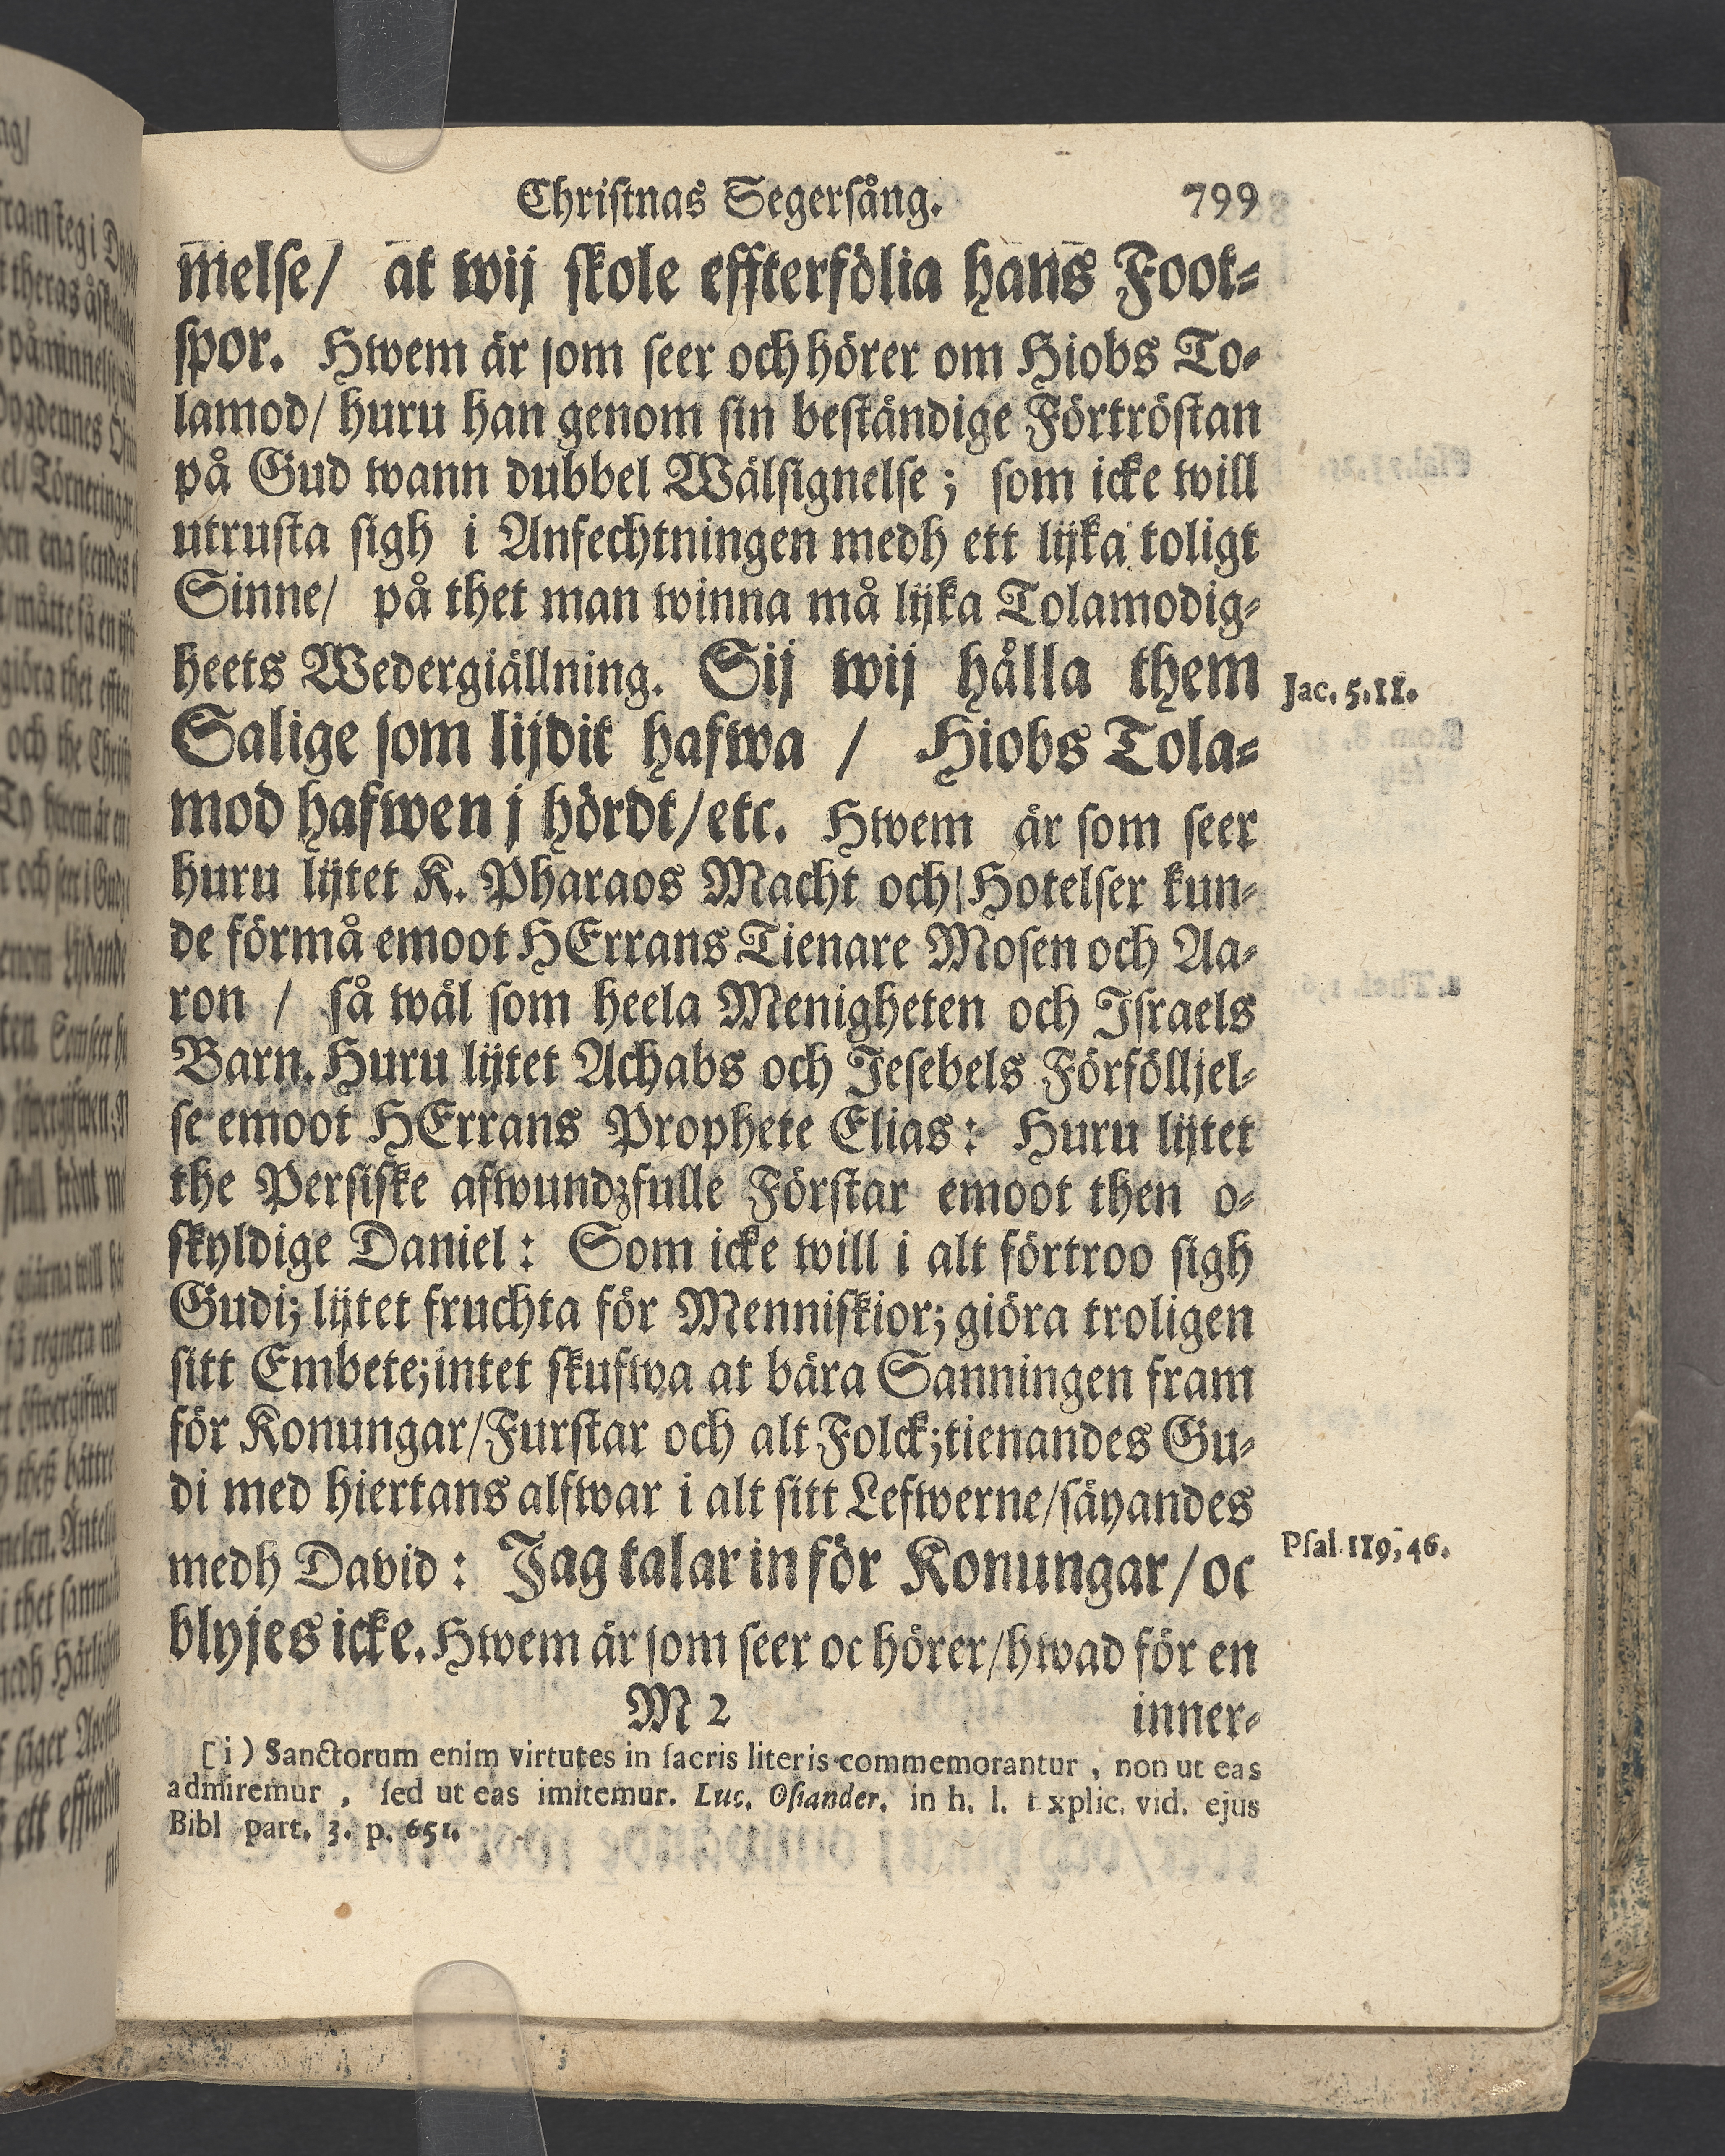 Christnas Segersång. 799
melse/ at wij skole effterfölia hans Foot-
spor. Hwem är som seer och hörer om Hiobs To-
lamod/ huru han genom sin beständige Förtröstan
på Gud wann dubbel Wälsignelse; som icke will
utrusta sigh i Anfechtningen medh ett lijka toligt
Sinne/ på thet man winna må lijka Tolamodig-
heets Wedergiällning. Sij wij hålla them
Jac. 5. 11.
Salige som lijdit hafwa / Hiobs Tola-
mod hafwen j hördt/etc. Hwem är som seer
huru lijtet K. Pharaos Macht och Hotelser kun-
de förmå emoot HErrans Tienare Mosen och Aa-
ron / så wäl som heela Menigheten och Israels
Barn. Huru lijtet Achabs och Jesebels Förfölljel-
se emoot HErrans Prophete Elias: Huru lijtet
the Persiske afwundzfulle Förstar emoot then o-
skyldige Daniel: Som icke will i alt förtroo sigh
Gudi; lijtet fruchta för Menniskior; giöra troligen
sitt Embete; intet skufwa at bära Sanningen fram
för Konungar/Furstar och alt Folck; tienandes Gu-
di med hiertans alfwar i alt sitt Lefwerne/säyandes
medh David: Jag talar in för Konungar/oc
Psal. 119, 46.
blyjes icke. Hwem är som seer oc hörer/hwad för en
M 2 inner-
[i) Sanctorum enim virtutes in sacris literis commemorantur, non ut eas
admiremur, sed ut eas imitemur. Luc. Osiander. in h. l. Explic. vid. ejus
Bibl part. 3. p. 651.